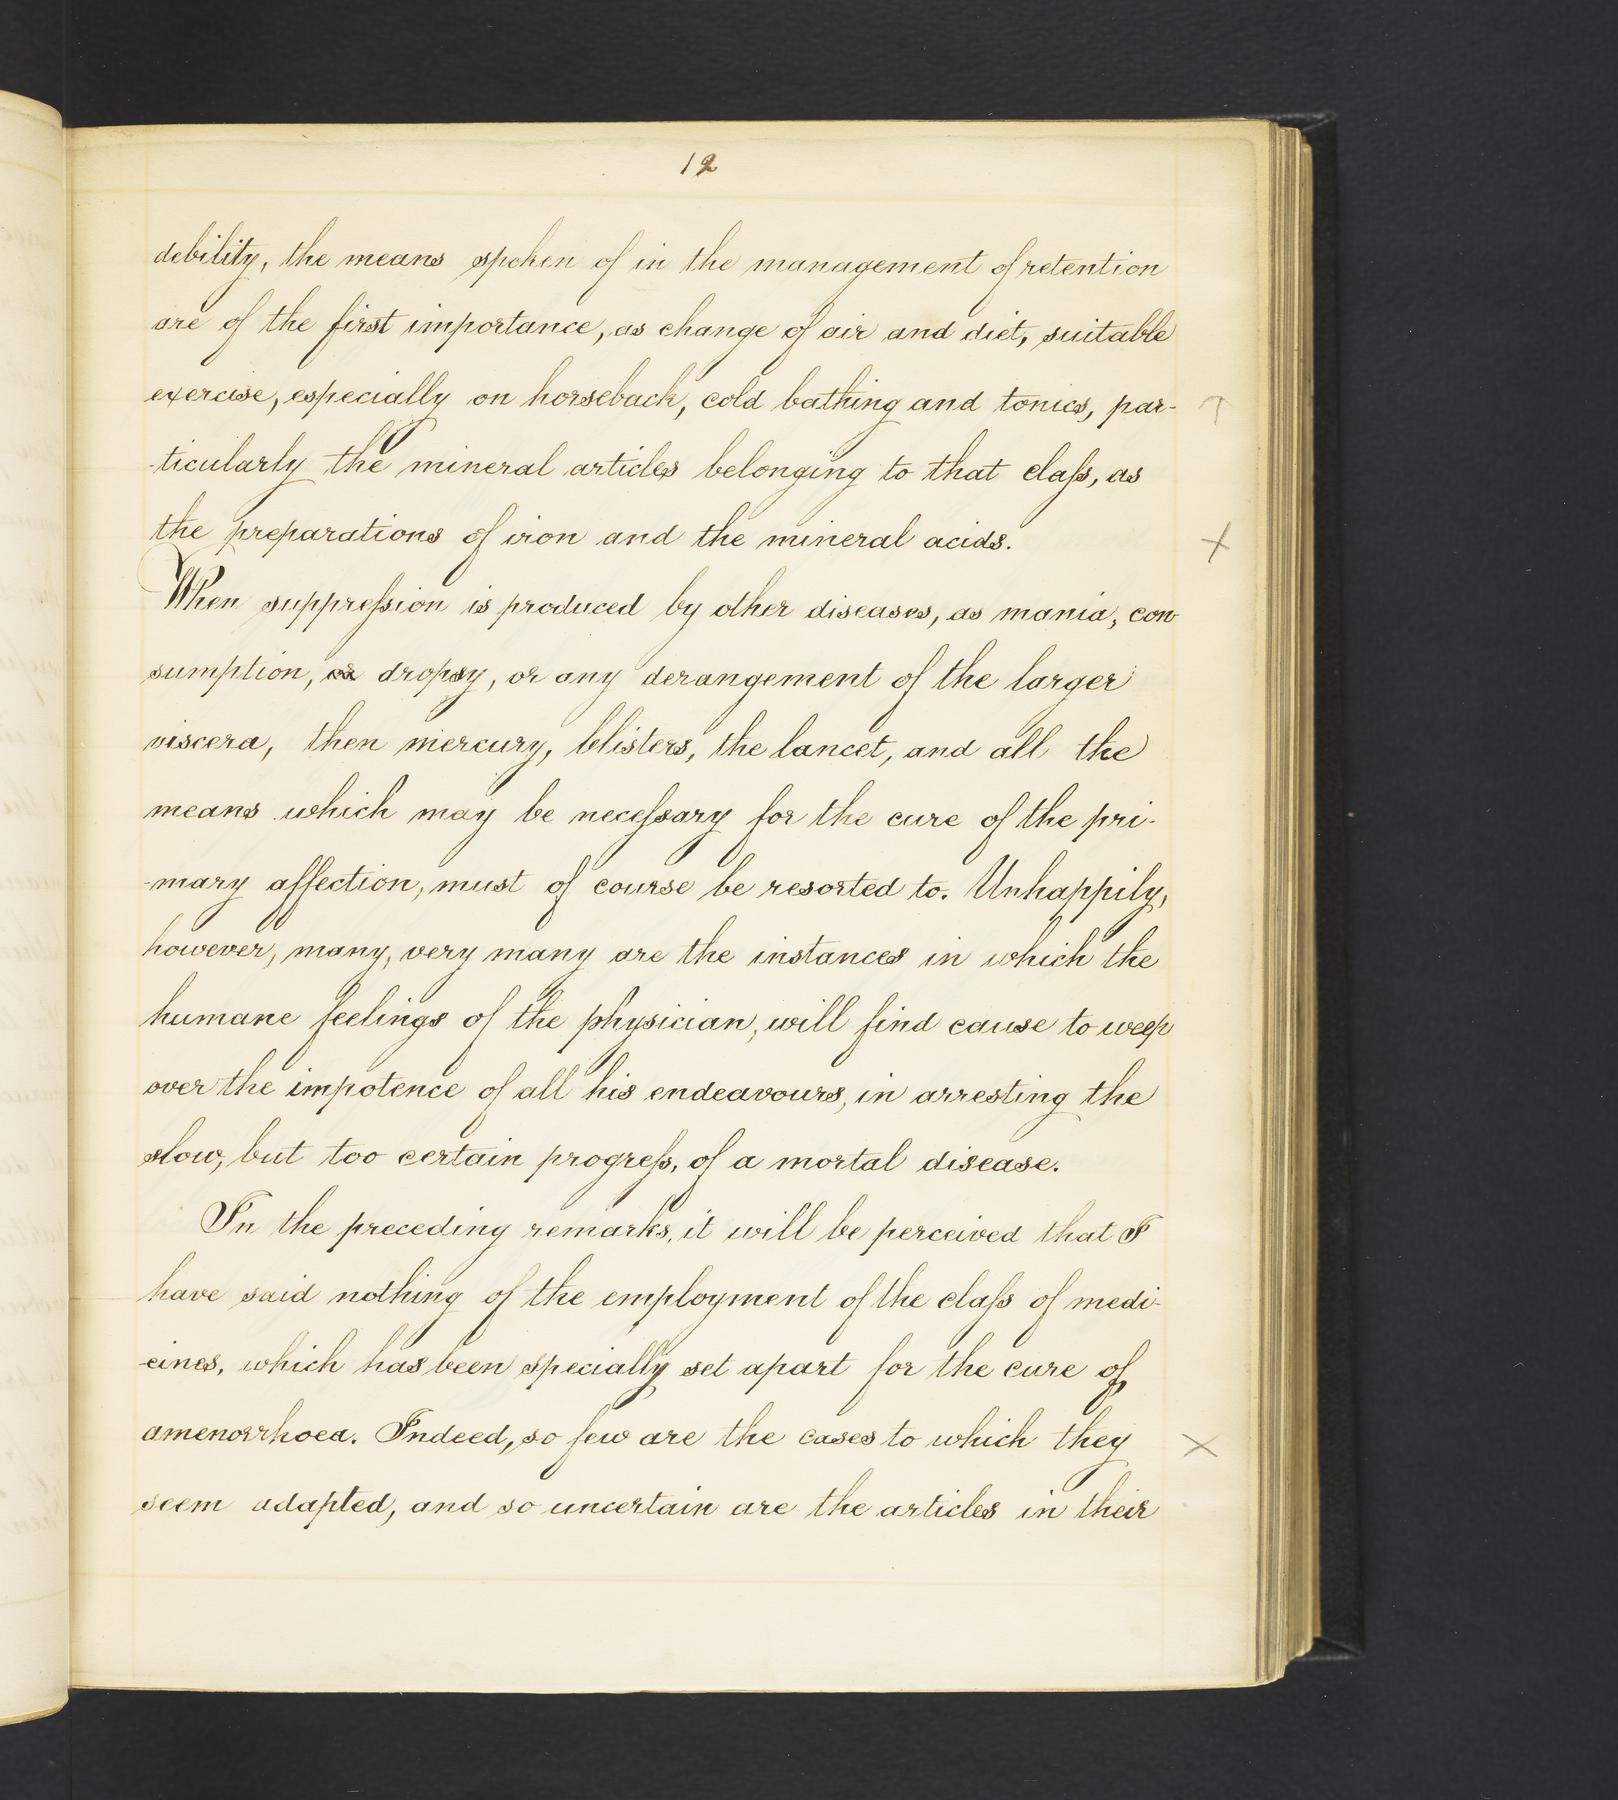 12
debility, the means spoken of in the management of retention
are of the first importance, as change of air and diet, suitable
exercise, especially on horseback, cold bathing and tonics, par-
-ticularly the mineral articles belonging to that claſs, as
the preparations of iron and the mineral acids.
When suppreſsion is produced by other diseases, as mania, con-
sumption, or dropsy, or any derangement of the larger
viscera, then mercury, blisters, the lancet, and all the
means which may be neceſsary for the cure of the pri-
-mary affection, must of course be resorted to. Unhappily,
however, many, very many are the instances in which the
humane feelings of the physician, will find cause to weep
over the impotence of all his endeavours, in arresting the
slow, but too certain progreſs, of a mortal disease.
In the preceding remarks, it will be perceived that I
have said nothing of the employment of the claſs of medi-
-cines, which has been specially set apart for the cure of
amenorrhoea. Indeed, so few are the cases to which they
seem adapted, and so uncertain are the articles in their